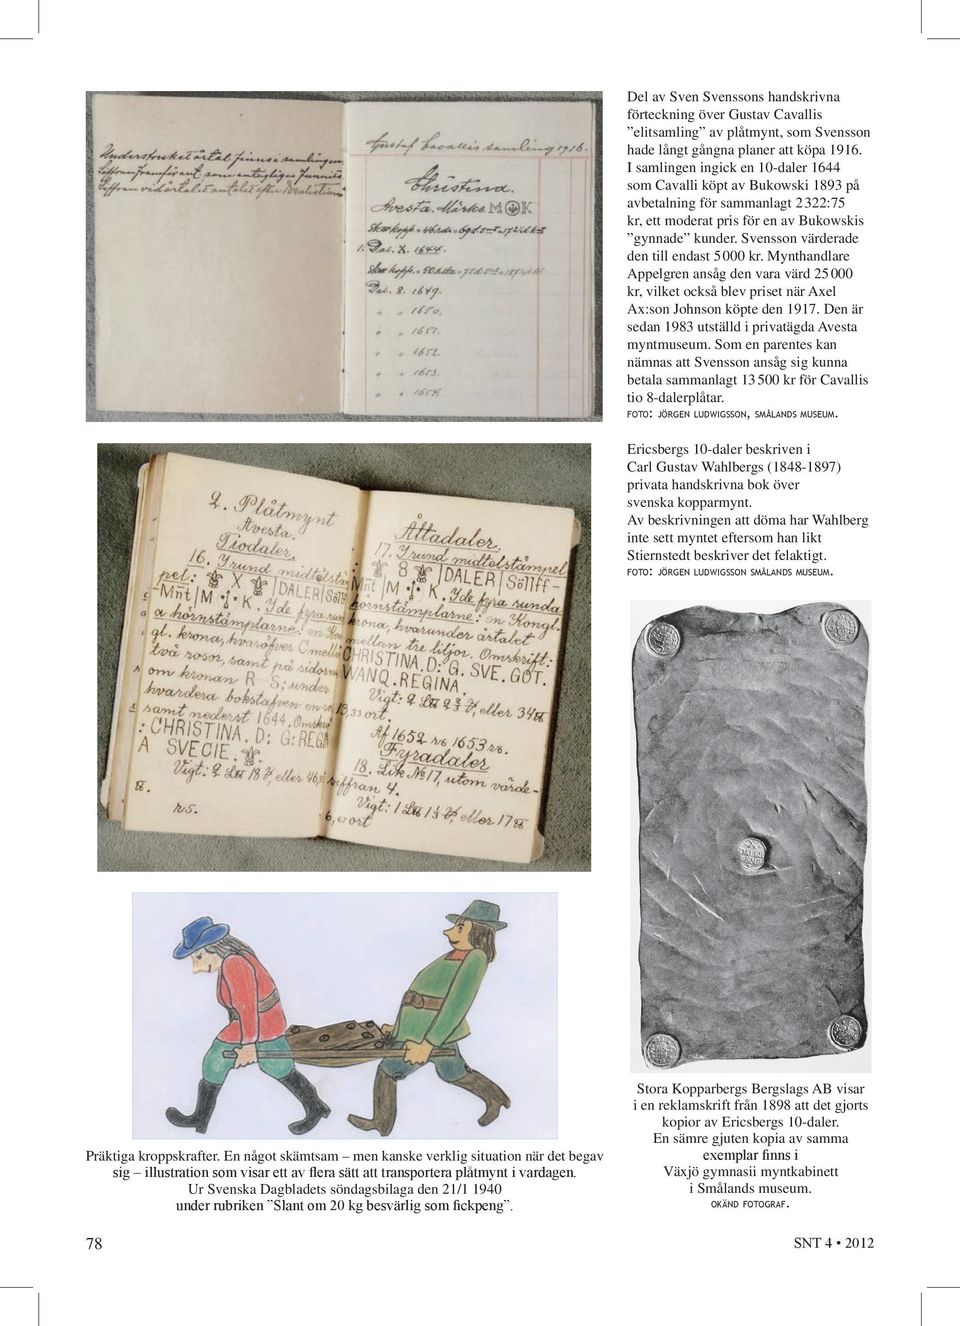 Understruket årtal finnes i samlingen
Siffran framför ant. som antagligen funnits
Siffran vid årtalet antalet efter
Gustaf Cavallis samling 1916.
Christina.
Avesta. Märke M K
1. Dal. X. 1644.
Dal. 8. 1649.
" " 1650.
" " 1651.
" " 1652.
" " 1653.
" " 1654.
Del av Sven Svenssons handskrivna
förteckning över Gustav Cavallis
”elitsamling” av plåtmynt, som Svensson
hade långt gångna planer att köpa 1916.
I samlingen ingick en 10-daler 1644
som Cavalli köpt av Bukowski 1893 på
avbetalning för sammanlagt 2 322:75
kr, ett moderat pris för en av Bukowskis
”gynnade” kunder. Svensson värderade
den till endast 5 000 kr. Mynthandlare
Appelgren ansåg den vara värd 25 000
kr, vilket också blev priset när Axel
Ax:son Johnson köpte den 1917. Den är
sedan 1983 utställd i privatägda Avesta
myntmuseum. Som en parentes kan
nämnas att Svensson ansåg sig kunna
betala sammanlagt 13 500 kr för Cavallis
tio 8-dalerplåtar.
FOTO: JÖRGEN LUDWIGSSON, SMÅLANDS MUSEUM.
Ericsbergs 10-daler beskriven i
Carl Gustav Wahlbergs (1848-1897)
privata handskrivna bok över
svenska kopparmynt.
Av beskrivningen att döma har Wahlberg
inte sett myntet eftersom han likt
Stiernstedt beskriver det felaktigt.
FOTO: JÖRGEN LUDWIGSSON SMÅLANDS MUSEUM.
2. Plåtmynt
Avesta.
Tiodaler.
16. I rund midtelstäm
pel: X |DALER|Sölff
-Mñt|M K. I de fyra run
a hörnstämplarne: en Kon
gl. krona, hvaröfver C mell
två rosor, samt på sidorn
om kronan R - S; under
hvardera bokstafven en ro
samt nederst 1644. Omskr
: CHRISTINA. D: G: REGI
A SVECIE.
Vigt: 2 L℔ 18 ℔, eller 46,
n:5.
Åttadaler.
17. I rund midtelstämpel
: 8 |DALER|Sölff-
Mñt|M K. I de fyra runda
hörnstämplarne: en Kongl.
krona, hvarunder årtalet
mellan tre liljor. Omskrift:
CHRISTINA. D: G. SVE. GOT.
WANQ. REGINA.
Vigt: 2 L℔ eller 34 ℔
13,33 ort.
Af 1652 1653
Fyradaler
18. Lik No 17, utom värde-
siffran 4.
Vigt: 1 L℔ eller 17 ℔
6,67 ort
Präktiga kroppskrafter. En något skämtsam – men kanske verklig situation när det begav
sig – illustration som visar ett av flera sätt att transportera plåtmynt i vardagen.
Ur Svenska Dagbladets söndagsbilaga den 21/1 1940
under rubriken ”Slant om 20 kg besvärlig som fickpeng”.
Stora Kopparbergs Bergslags AB visar
i en reklamskrift från 1898 att det gjorts
kopior av Ericsbergs 10-daler.
En sämre gjuten kopia av samma
exemplar finns i
Växjö gymnasii myntkabinett
i Smålands museum.
OKÄND FOTOGRAF.
78
SNT 4 • 2012